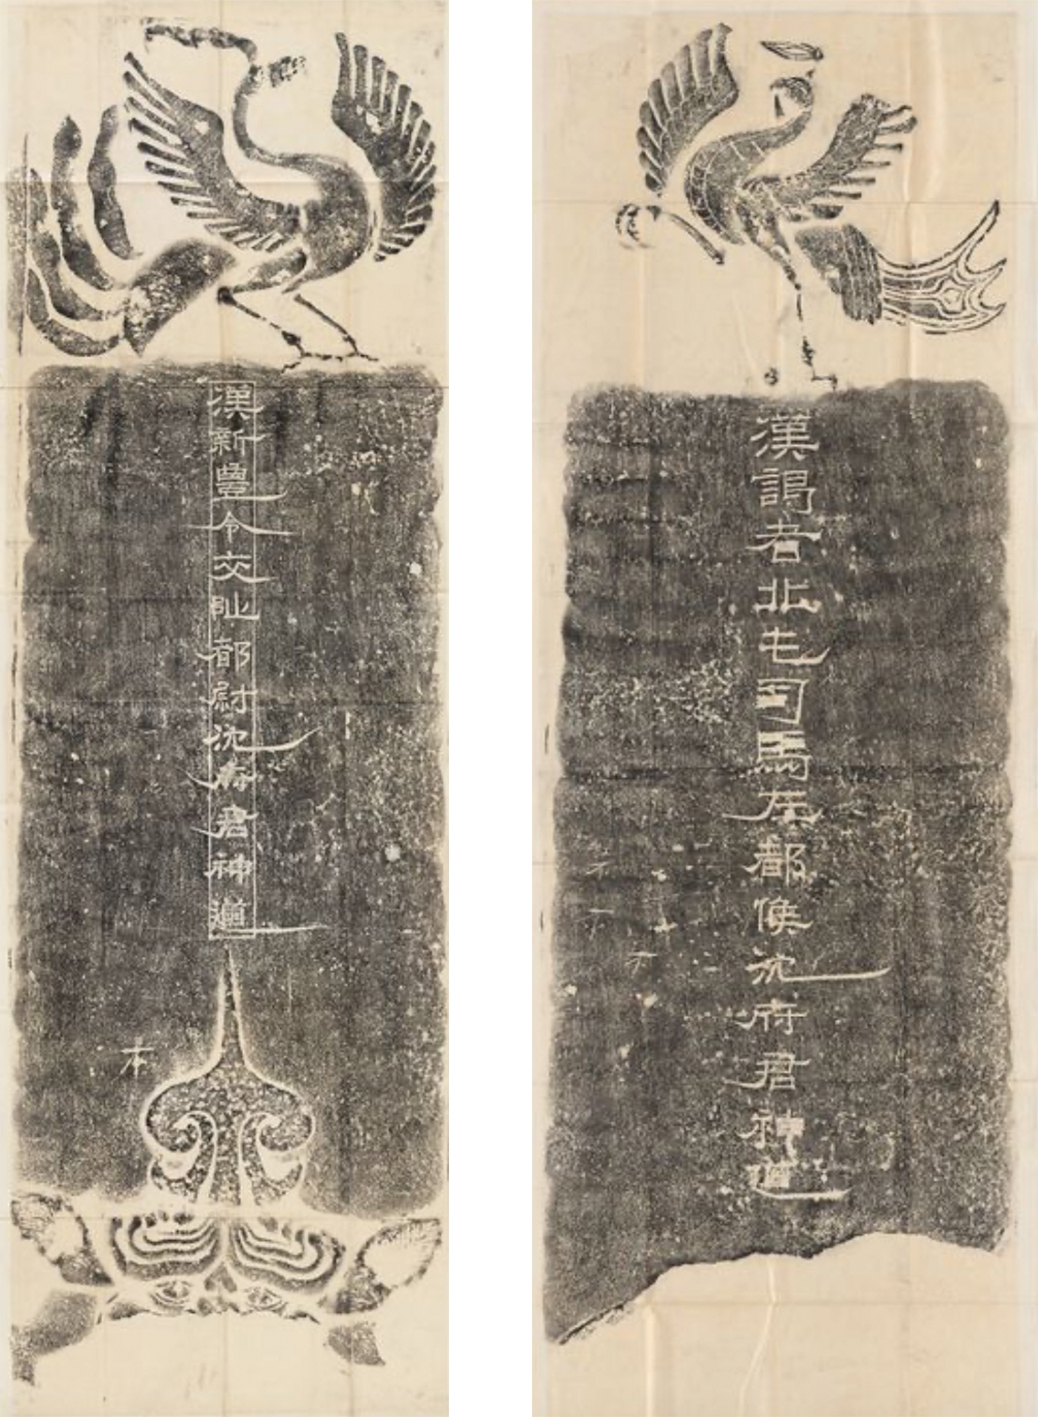 漢謁者北屯司馬左都候沈府君神道
漢新豐令交阯都尉沈府君神道